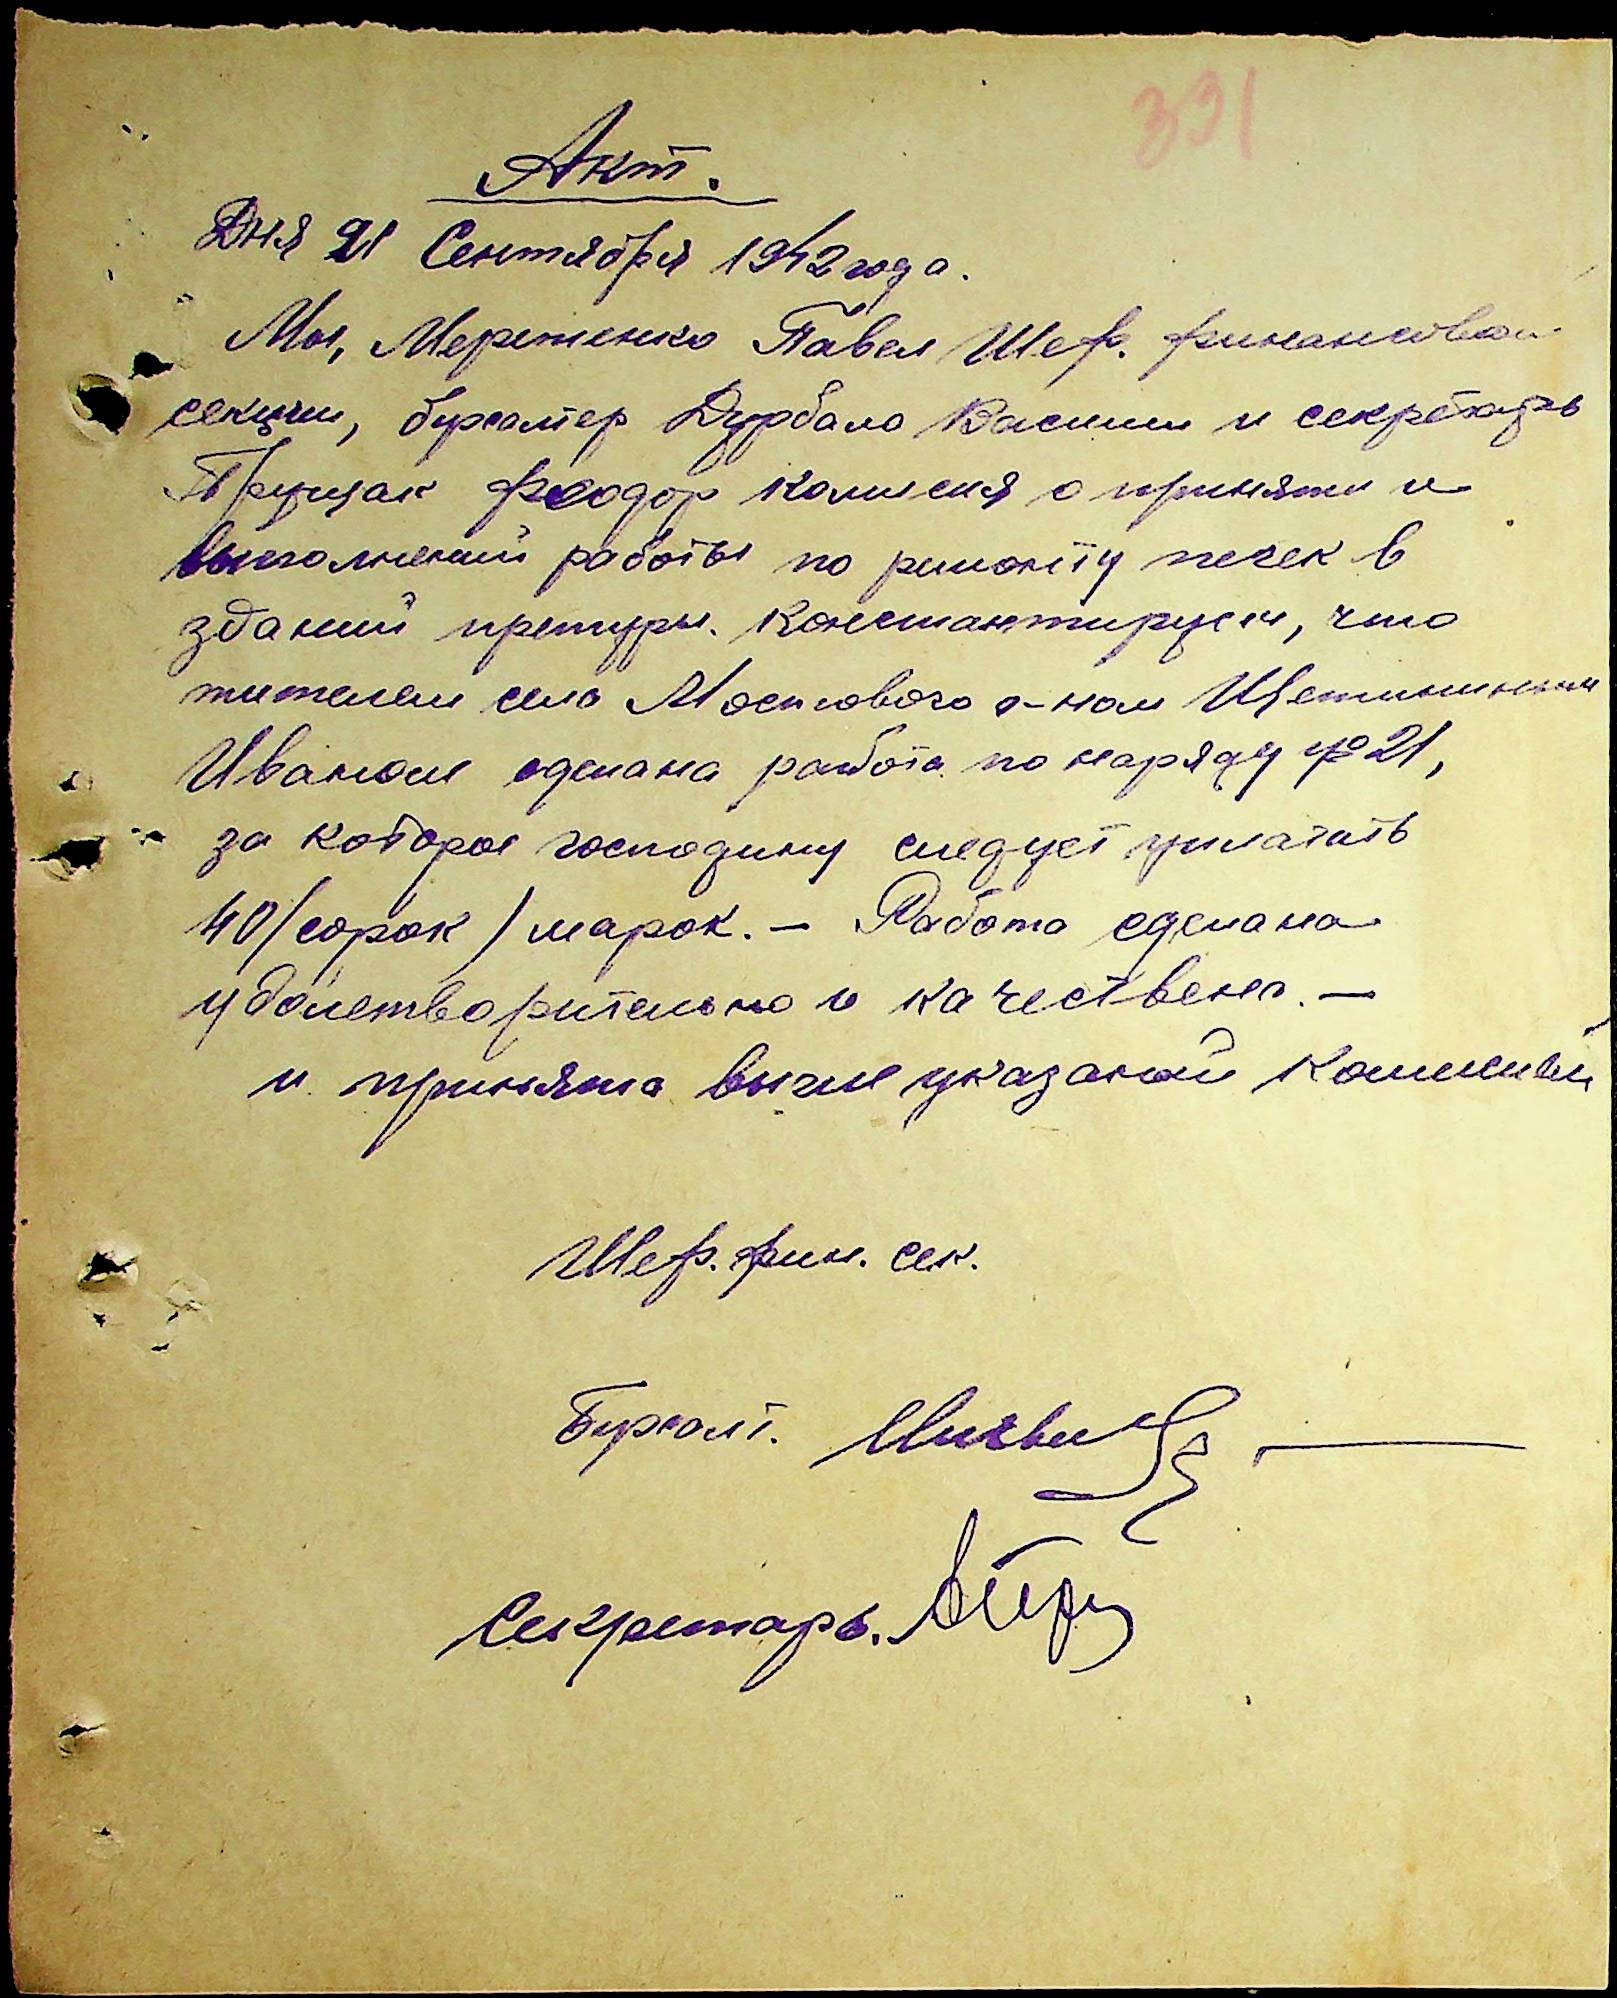 331
Акт.
Дня 21 Сентября 1942 года.
Мы, Мережко Павел Шеф. финансовой
секции, бухгалтер Дурбало Василий и секретарь
Прущак Феодор комисия о приняти и
выполнений работы по ремонту печек в
зданий претуры. Константируем, что
жителем села Мостового г-ном Щетининым
Иваном сделана работа по наряду № 21,
за которое господину следует уплатить
40/сорок/марок. — Работа сделана
удолетворительно и качествено. —
и принята выше указаной Комисией
Шеф. фин. сек.
Бухгалт.
Секретарь.